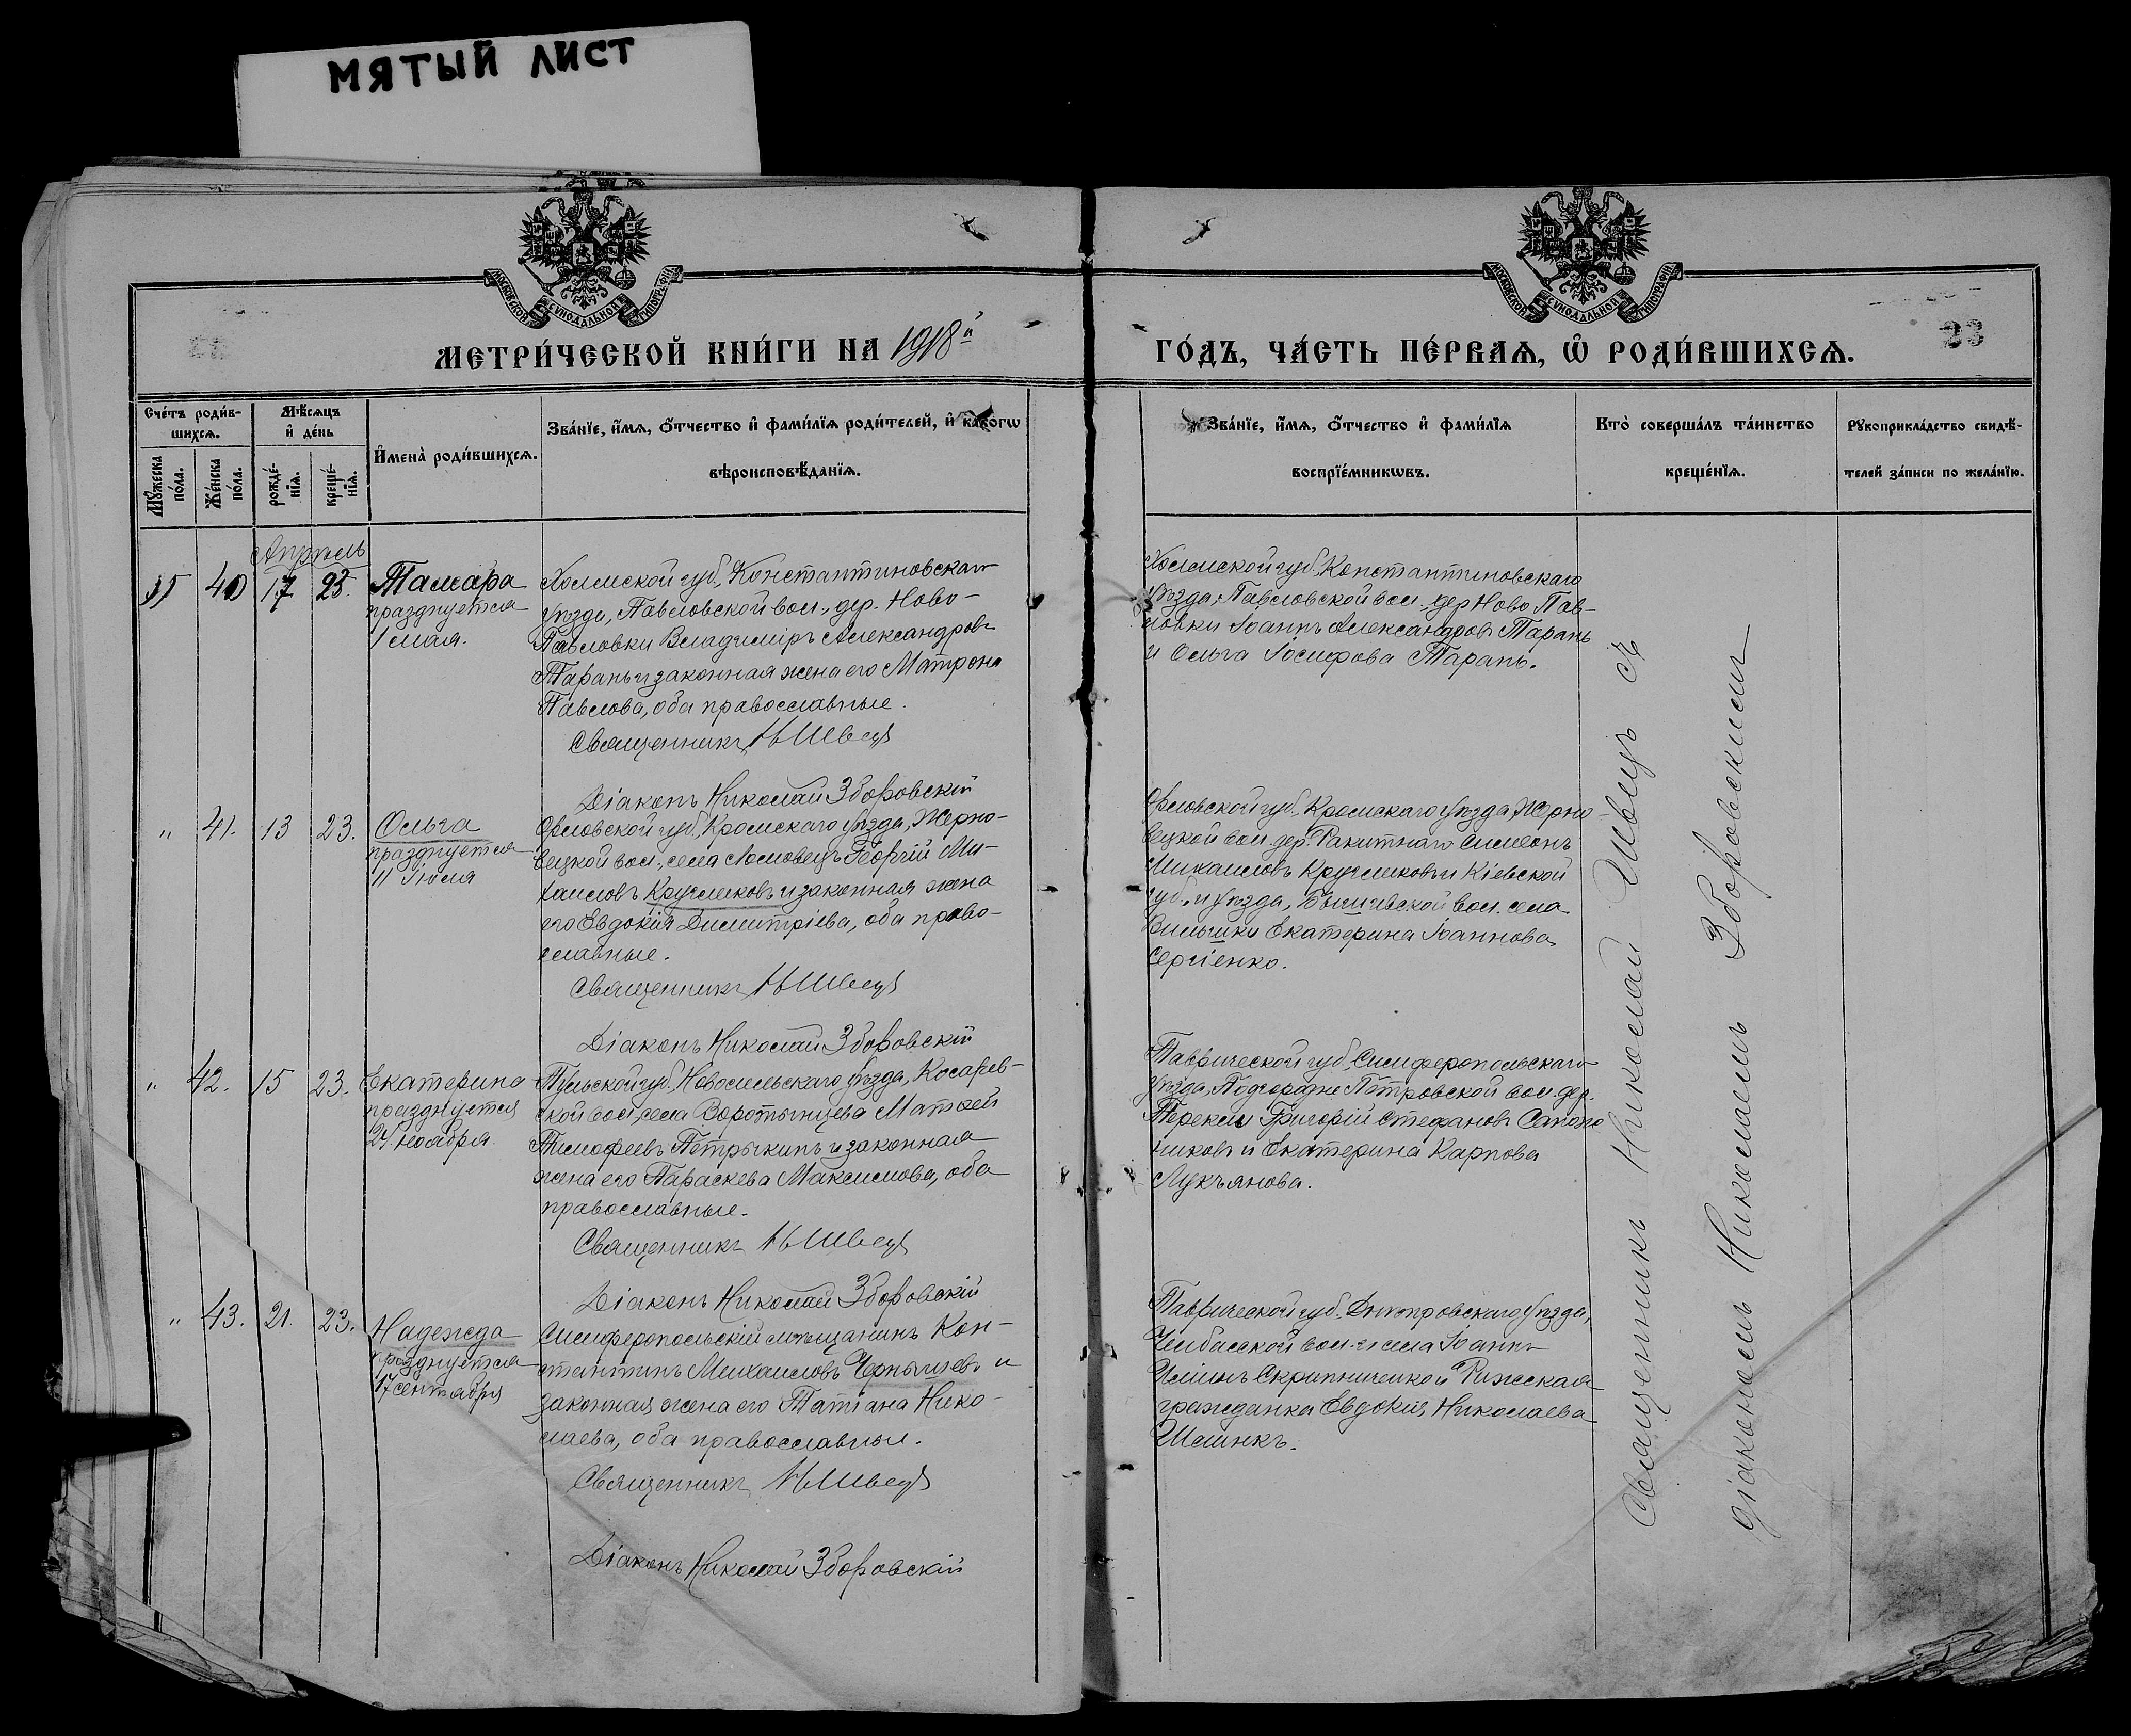 МЯТЫЙ ЛИСТ
МОСКОВСКОЙ СѴНОДАЛЬНОЙ ТИПОГРАФІИ
МОСКОВСКОЙ СѴНОДАЛЬНОЙ ТИПОГРАФІИ
23
МЕТРИ́ЧЕСКОЙ КНИ́ГИ НА 1918й
ГО́ДЪ, ЧА́СТЬ ПЕ́РВАѦ, Ѡ РОДИ́ВШИХСѦ.
Сче́тъ роди́в-
шихсѧ.
Мꙋ́жеска по́ла.
Же́нска по́ла.
Мѣ́сѧцъ
и҆ де́нь
рожде́-
нїѧ.
креще́-
нїѧ.
И҆мена̀ роди́вшихсѧ.
Зва́нїе, и҆́мѧ, ѻ҆́тчество и҆ фами́лїѧ роди́телей, и҆ како́гѡ
вѣроисповѣ́данїѧ.
Зва́нїе, и҆́мѧ, ѻ҆́тчество и҆ фами́лїѧ
воспрїе́мникѡвъ.
Кто̀ соверша́лъ та́инство
креще́нїѧ.
Рꙋкоприкла́дство свидѣ́-
телей за́писи по жела́нїю.
Апрѣль
40 17 23. Тамара
празднуется
1 мая.
Холмской губ., Константиновскаго
уѣзда, Павловской вол., дер. Ново-
Павловки Владиміръ Александровъ
Тарань и законная жена его Матрона
Павлова, оба православные.
Священникъ Н Швецъ
Діаконъ Николай Зборовскій
Холмской губ., Константиновскаго
уѣзда, Павловской вол., дер Ново Пав-
ловки Іоаннъ Александровъ Тарань
и Ольга Іосифова Тарань.
" 41. 13 23. Ольга
празднуется
11 Іюля
Орловской губ., Кромскаго уѣзда, Жерно-
вецкой вол., села Ломовецъ Георгій Ми-
хаиловъ Кругликовъ и законная жена
его Евдокія Димитріева, оба право-
славные.
Священникъ Н Швецъ
Діаконъ Николай Зборовскій
Орловской губ., Кромскаго уѣзда Жерно-
вецкой вол. дер. Ракитнаго Симеонъ
Михаиловъ Кругликовъ и Кіевской
губ., и уѣзда, Бышевской вол. села
Екатерина Іоаннова
Сергіенко.
" 42. 15 23. Екатерина
празднуется
24. ноября.
Тульской губ., Новосильскаго уѣзда, Косарев-
ской вол., села Воротынцева Матвей
Тимофеевъ Петрыкинъ и законная
жена его Параскева Максимова, оба
православные.
Священникъ Н Швецъ
Діаконъ Николай Зборовскій
Таврической губ., Симферопольскаго
уѣзда, Подгородне Петровской вол. дер.
Григорій Стефановъ Сапож
никовъ и Екатерина Карпова
Лукъянова.
" 43. 21. 23. Надежда
празднуется
17 сентября
Симферопольскій мѣщанинъ Кон-
стантинъ Михаиловъ Чернышевъ и
законная жена его Татіана Нико-
лаева, оба православные.
Священникъ Н Швецъ
Діаконъ Николай Зборовскій
Таврической губ. Днѣпровскаго уѣзда,
вол. и села Іоаннъ
и Рижская
гражданка Евдокія Николаева
Священникъ Николай Швецъ съ
діакономъ Николаемъ Зборовскимъ